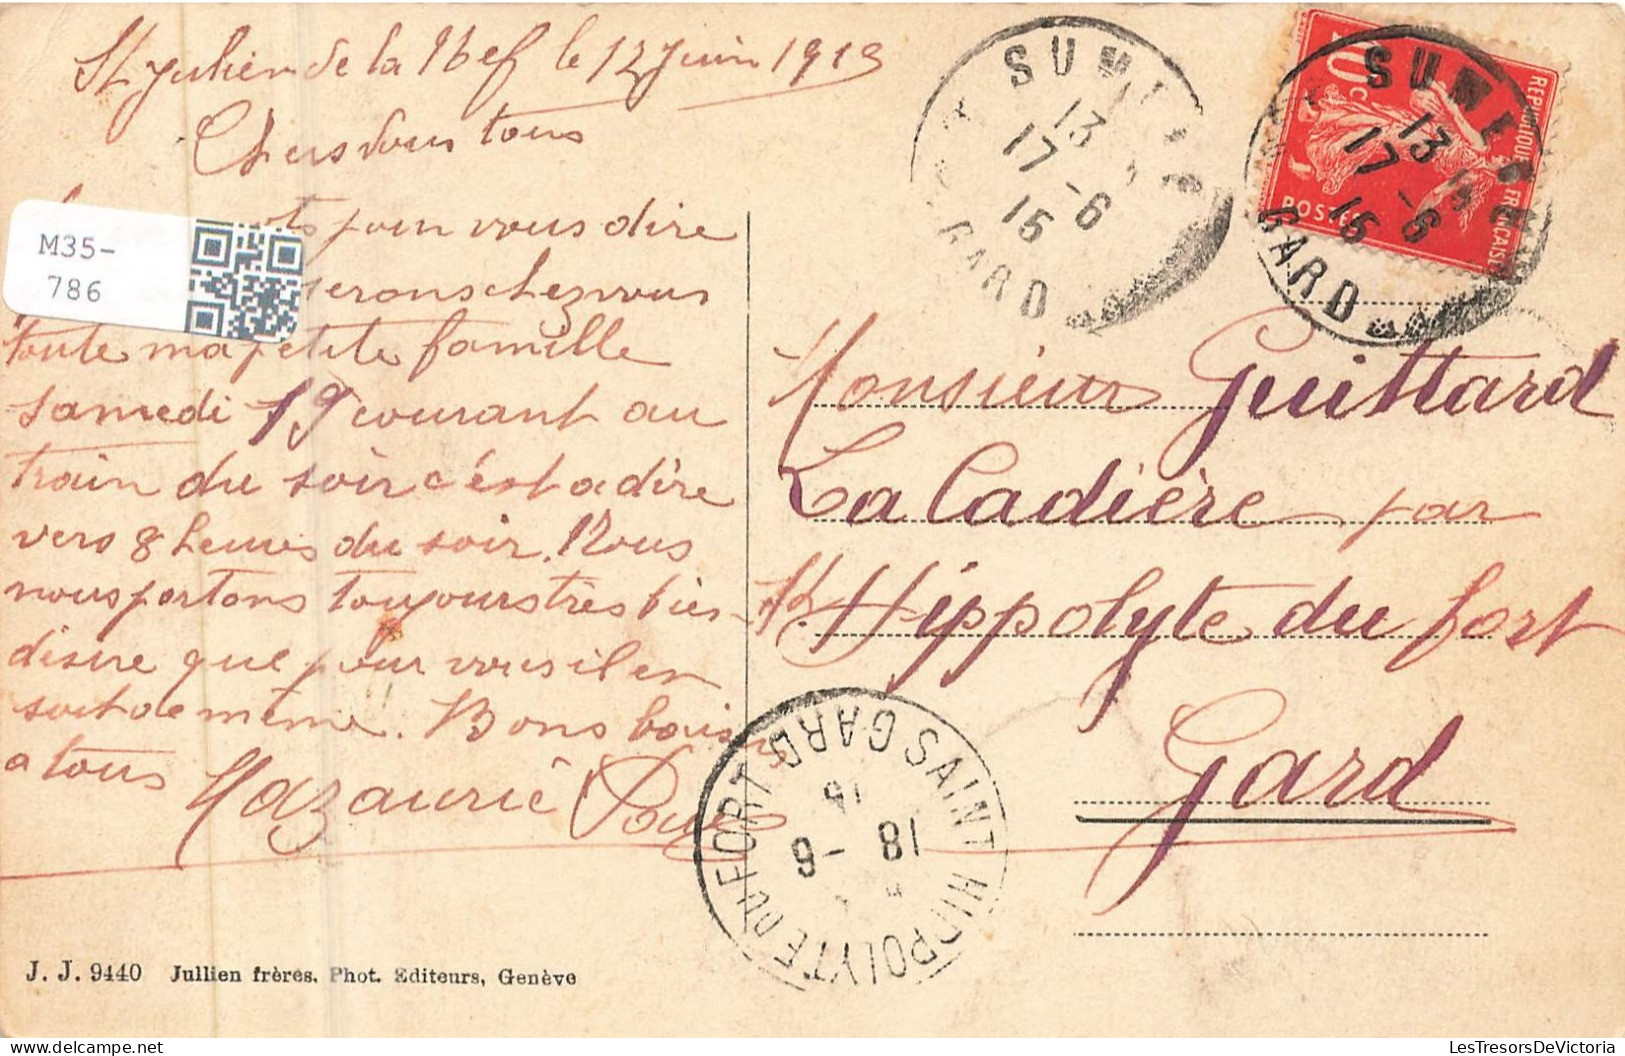 St Julien de la Nef le 17 Juin 1915
Chers vous tous
pour vous dire
serons chez vous
toute ma petite famille
samedi 19 courant au
train du soir c'est a dire
vers 8 heures du soir. Nous
nous portons toujours très bien
disire que pour vous il en
soit de même. Bons baisers
a tous Mazauric Paul
J. J. 9440 Jullien frères. Phot. Editeurs, Genève
M35-
786
SUMENE
13
17 -6
15
GARD
REPUBLIQUE FRANÇAISE
10c
POSTES
SUMENE
13 15
17 -6
15
GARD
Monsieur Guittard
La Cadière par
St. Hippolyte du fort
Gard
SAINT HIPPOLYTE DU FORT GARD
18 -6
15
LesTresorsDeVictoria